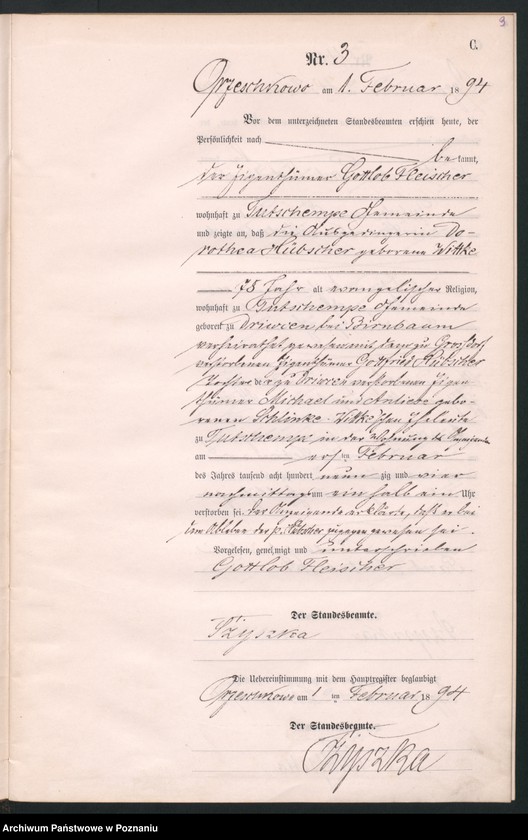 9.
C.
Nr. 3
Orzeschkowo am 1. Februar 1894
Vor dem unterzeichneten Standesbeamten erschien heute, der
Persönlichkeit nach
be kannt,
der Eigenthümer Gottlob Fleischer
wohnhaft zu Tutschempe Gemeinde
und zeigte an, daß die Ausgedingerin Do-
rothea Hübscher geborene Wittke
78 Jahr alt evangelischer Religion,
wohnhaft zu Tutschempe Gemeinde
geboren zu Driewcen bei Birnbaum
verheirathet gewesen mit dem zu Großdorf
verstorbenen Eigenthümer Gottfried Hübscher
Tochter der zu verstorbenen Eigen-
thümer Michael und gebo-
renen Schlinke - Wittke'schen Eheleute
zu Tutschempe in der Wohnung des Anzeigenden
am ersten Februar
des Jahres tausend acht hundert neun zig und vier
nachmittags um ein halb ein Uhr
verstorben sei. Der Anzeigende erklärte, daß er bei
dem Ableben der p. Hübscher zugegen gewesen sei.
Vorgelesen, genehmigt und unterschrieben
Gottlob Fleischer
Der Standesbeamte.
Tżyszka
Die Uebereinstimmung mit dem Hauptregister beglaubigt
Orzeschkowo am 1 ten Februar 1894
Der Standesbeamte.
Tżyszka
Archiwum Państwowe w Poznaniu